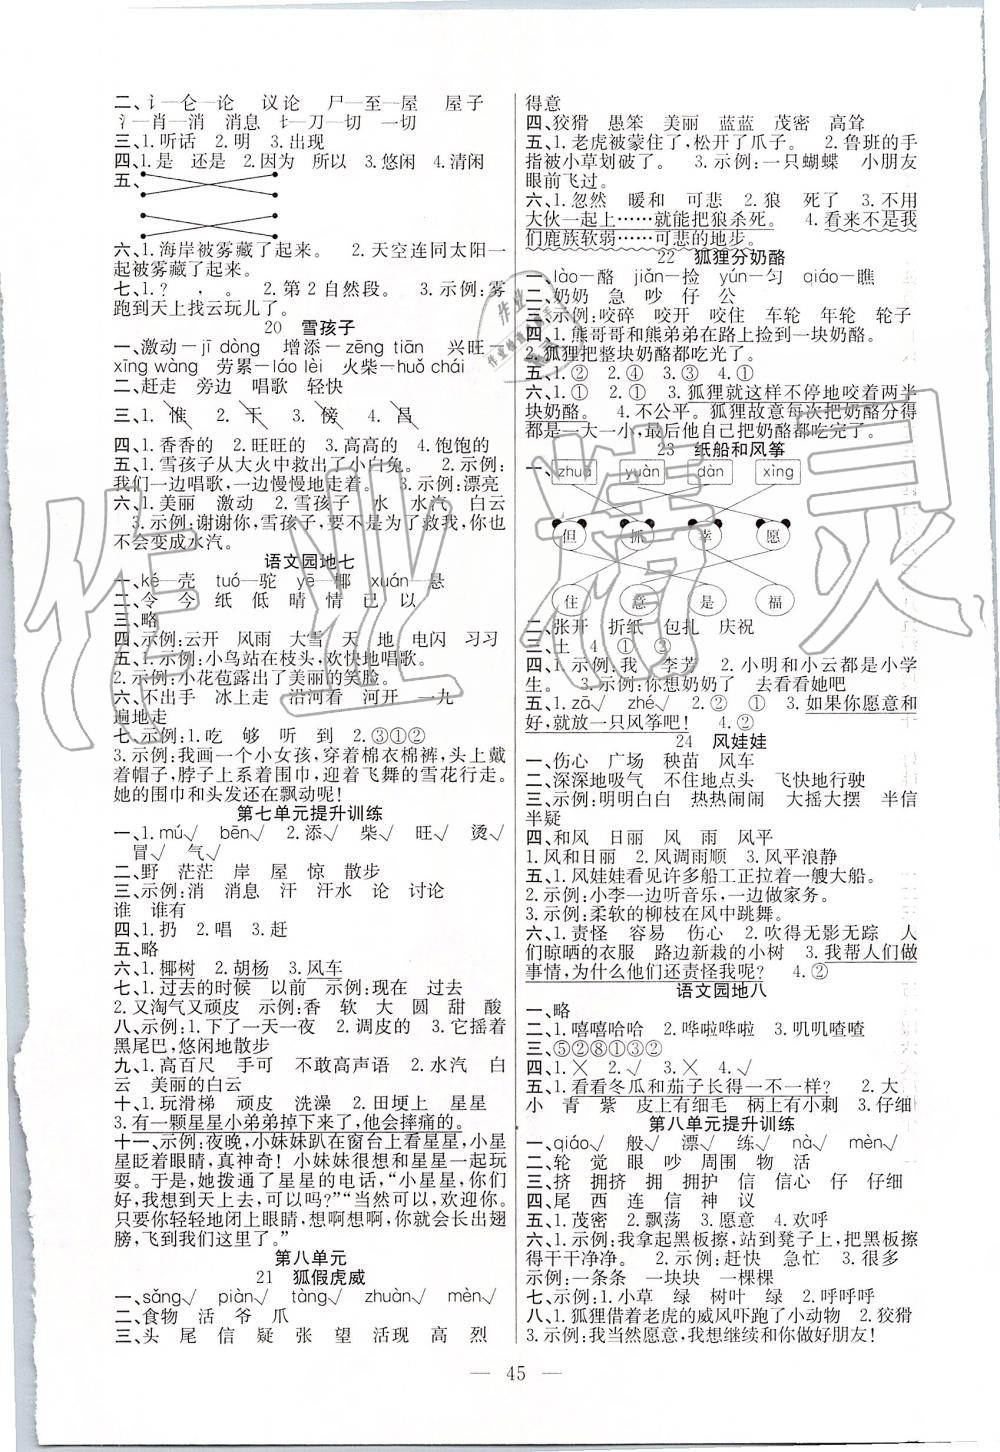 二、讠—仑—论　议论　尸—至—屋　屋子
氵—肖—消　消息　七—刀—切　一切
三、1.听话　2.明　3.出现
四、1.是　还是　2.因为　所以　3.悠闲　4.清闲
五、
六、1.海岸被雾藏了起来。　2.天空连同太阳一
起被雾藏了起来。
七、1.？　，　。　2.第2自然段。　3.示例:雾
跑到天上找云玩儿了。
20　雪孩子
一、激动—jī dòng　增添—zēng tiān　兴旺—
xīng wàng　劳累—láo lèi　火柴—huǒ chái
二、赶走　旁边　唱歌　轻快
三、1.惟　2.干　3.榜　4.昌
四、1.香香的　2.旺旺的　3.高高的　4.饱饱的
五、1.雪孩子从大火中救出了小白兔。　2.示例:
我们一边唱歌,一边慢慢地走着。　3.示例:漂亮
六、1.美丽　激动　2.雪孩子　水　水汽　白云
3.示例:谢谢你,雪孩子,要不是为了救我,你也
不会变成水汽。
语文园地七
一、ké—壳　tuó—驼　yē—椰　xuán—悬
二、令　今　纸　低　晴　情　已　以
三、略
四、示例:云开　风雨　大雪　天　地　电闪　习习
五、1.示例:小鸟站在枝头,欢快地唱歌。
2.示例:小花苞露出了美丽的笑脸。
六、不出手　冰上走　沿河看　河开　一九
遍地走
七、示例:1.吃　够　听　到　2.③①②
3.示例:我画一个小女孩,穿着棉衣棉裤,头上戴
着帽子,脖子上系着围巾,迎着飞舞的雪花行走。
她的围巾和头发还在飘动呢!
第七单元提升训练
一、1.mú√　bēn√　2.添√　柴√　旺√　烫√
冒√　气√
二、野　茫茫　岸　屋　惊　散步
三、示例:消　消息　汗　汗水　论　讨论
谁　谁有
四、1.扔　2.唱　3.赶
五、略
六、1.椰树　2.胡杨　3.风车
七、1.过去的时候　以前　示例:现在　过去
2.又淘气又顽皮　示例:香　软　大　圆　甜　酸
八、示例:1.下了一天一夜　2.调皮的　3.它摇着
黑尾巴,悠闲地散步
九、1.高百尺　手可　不敢高声语　2.水汽　白
云　美丽的白云
十、1.玩滑梯　顽皮　洗澡　2.田埂上　星星
3.有一颗星星小弟弟掉下来了,他会摔痛的。
十一、示例:夜晚,小妹妹趴在窗台上看星星,小星
星眨着眼睛,真神奇!小妹妹和星星一起玩
耍。于是,她拨通了星星的电话,“小星星,你们
好,我想到天上去,可以吗?”“当然可以,欢迎你。
只要你轻轻地闭上眼睛,想啊想啊,你就会长出翅
膀,飞到我们这里了。”
第八单元
21　狐假虎威
一、sǎng√　piàn√　tàng√　zhuàn√　mèn√
二、食物　活　爷　爪
三、头　尾　信　疑　张　望　活现　高　烈
得意
四、狡猾　愚笨　美丽　蓝蓝　茂密　高耸
五、1.老虎被蒙住了,松开了爪子。　2.鲁班的手
指被小草划破了。　3.示例:一只蝴蝶　小朋友
眼前飞过。
六、1.忽然　暖和　可悲　2.狼　死了　3.不用
大伙一起上……就能把狼杀死。　4.看来不是我
们鹿族软弱……可悲的地步。
22　狐狸分奶酪
一、lào—酪　jiǎn—捡　yún—匀　qiáo—瞧
二、奶奶　急　吵　仔　公
三、示例:咬碎　咬开　咬住　车轮　年轮　轮子
四、1.熊哥哥和熊弟弟在路上捡到一块奶酪。
2.狐狸把整块奶酪都吃光了。
五、1.②　2.④　3.③　4.①
六、1.①　2.①　3.狐狸就这样不停地咬着两半
块奶酪。　4.不公平。狐狸故意每次把奶酪分得
都是一大一小,最后他自己把奶酪都吃完了。
23　纸船和风筝
一、zhuā　yuàn　dàn　xìng
但　抓　幸　愿
住　意　是　福
二、张开　折纸　包扎　庆祝
三、土　4　①　②
四、1.示例:我　李芳　2.小明和小云都是小学
生。　3.示例:你想奶奶了　去看看她吧
五、1.zā√　zhé√　2.②　①　3.如果你愿意和
好,就放一只风筝吧!　4.②
24　风娃娃
一、伤心　广场　秧苗　风车
二、深深地吸气　不住地点头　飞快地行驶
三、示例:明明白白　热热闹闹　大摇大摆　半信
半疑
四、和风　日丽　风　雨　风平
1.风和日丽　2.风调雨顺　3.风平浪静
五、1.风娃娃看见许多船工正拉着一艘大船。
2.示例:小李一边听音乐,一边做家务。
3.示例:柔软的柳枝在风中跳舞。
六、1.责怪　容易　伤心　2.吹得无影无踪　人
们晾晒的衣服　路边新栽的小树　3.我帮人们做
事情,为什么他们还责怪我呢?　4.②
语文园地八
一、略
二、1.嘻嘻哈哈　2.哗啦哗啦　3.叽叽喳喳
三、⑤②⑧①③②
四、1.×　2.×　3.×　4.√
五、1.看看冬瓜和茄子长得一不一样?　2.大
小　青　紫　皮上有细毛　柄上有小刺　3.仔细
第八单元提升训练
一、qiáo√　般√　漂√　练√　nà√　mèn√
二、轮　觉　眼　吵　周围　物　活
三、挤　拥挤　拥　拥护　信　信心　仔　仔细
四、尾　西　连　信　神　议
五、1.茂密　2.飘荡　3.愿意　4.欢呼
六、1.示例:我拿起黑板擦,站到凳子上,把黑板擦
得干干净净。　2.示例:赶快　急忙　3.很多
示例:一条条　一块块　一棵棵
七、示例:1.小草　绿　树叶　绿　2.呼呼呼
八、1.狐狸借着老虎的威风吓跑了小动物　2.狡猾
3.示例:我当然愿意,我想继续和你做好朋友!
— 45 —
作业精灵